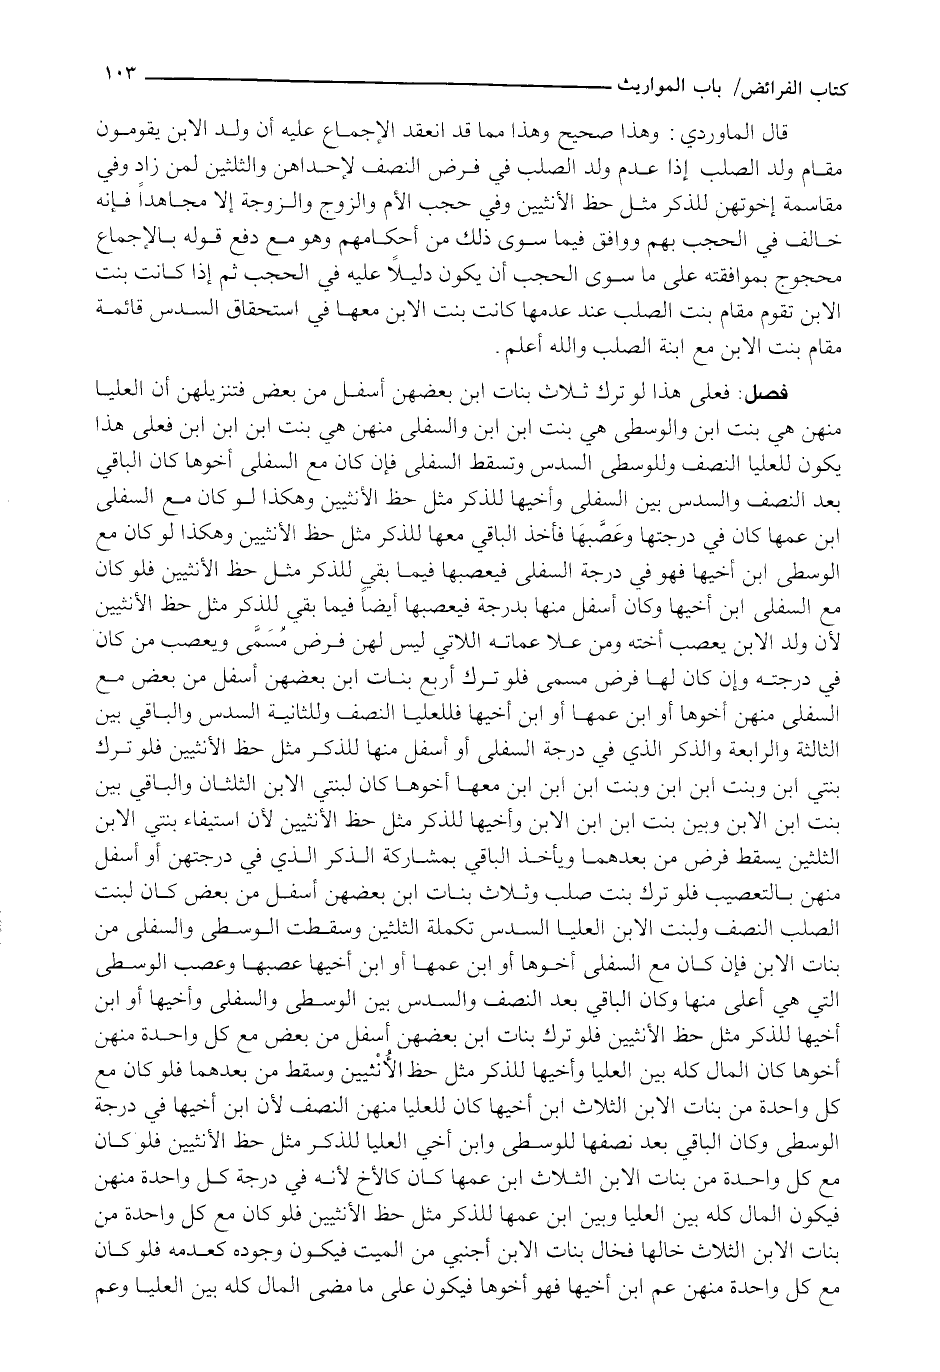 كتاب الفرائض/ باب المواريث ١٠٣
قال الماوردي: وهذا صحيح وهذا مما قد انعقد الإجماع عليه أن ولد الابن يقومون
مقام ولد الصلب إذا عدم ولد الصلب في فرض النصف لإحداهن والثلثين لمن زاد وفي
مقاسمة إخوتهن للذكر مثل حظ الأنثيين وفي حجب الأم والزوج والزوجة إلا مجاهداً فإنه
خالف في الحجب بهم ووافق فيما سوى ذلك من أحكامهم وهو مع دفع قوله بالإجماع
محجوج بموافقته على ما سوى الحجب أن يكون دليلاً عليه في الحجب ثم إذا كانت بنت
الابن تقوم مقام بنت الصلب عند عدمها كانت بنت الابن معها في استحقاق السدس قائمة
مقام بنت الابن مع ابنة الصلب والله أعلم.
فصل: فعلى هذا لو ترك ثلاث بنات ابن بعضهن أسفل من بعض فتنزيلهن أن العليا
منهن هي بنت ابن والوسطى هي بنت ابن ابن والسفلى منهن هي بنت ابن ابن ابن فعلى هذا
يكون للعليا النصف وللوسطى السدس وتسقط السفلى فإن كان مع السفلى أخوها كان الباقي
بعد النصف والسدس بين السفلى وأخيها للذكر مثل حظ الأنثيين وهكذا لو كان مع السفلى
ابن عمها كان في درجتها وعَصَّبهَا فأخذ الباقي معها للذكر مثل حظ الأنثيين وهكذا لو كان مع
الوسطى ابن أخيها فهو في درجة السفلى فيعصبها فيما بقي للذكر مثل حظ الأنثيين فلو كان
مع السفلى ابن أخيها وكان أسفل منها بدرجة فيعصبها أيضاً فيما بقي للذكر مثل حظ الأنثيين
لأن ولد الابن يعصب أخته ومن علا عماته اللاتي ليس لهن فرض مُسَمًّى ويعصب من كان
في درجته وإن كان لها فرض مسمى فلو ترك أربع بنات ابن بعضهن أسفل من بعض مع
السفلى منهن أخوها أو ابن عمها أو ابن أخيها فللعليا النصف وللثانية السدس والباقي بين
الثالثة والرابعة والذكر الذي في درجة السفلى أو أسفل منها للذكر مثل حظ الأنثيين فلو ترك
بنتي ابن وبنت ابن ابن وبنت ابن ابن ابن معها أخوها كان لبنتي الابن الثلثان والباقي بين
بنت ابن الابن وبين بنت ابن ابن الابن وأخيها للذكر مثل حظ الأنثيين لأن استيفاء بنتي الابن
الثلثين يسقط فرض من بعدهما ويأخذ الباقي بمشاركة الذكر الذي في درجتهن أو أسفل
منهن بالتعصيب فلو ترك بنت صلب وثلاث بنات ابن بعضهن أسفل من بعض كان لبنت
الصلب النصف ولبنت الابن العليا السدس تكملة الثلثين وسقطت الوسطى والسفلى من
بنات الابن فإن كان مع السفلى أخوها أو ابن عمها أو ابن أخيها عصبها وعصب الوسطى
التي هي أعلى منها وكان الباقي بعد النصف والسدس بين الوسطى والسفلى وأخيها أو ابن
أخيها للذكر مثل حظ الأنثيين فلو ترك بنات ابن بعضهن أسفل من بعض مع كل واحدة منهن
أخوها كان المال كله بين العليا وأخيها للذكر مثل حظ الأُنْثيين وسقط من بعدهما فلو كان مع
كل واحدة من بنات الابن الثلاث ابن أخيها كان للعليا منهن النصف لأن ابن أخيها في درجة
الوسطى وكان الباقي بعد نصفها للوسطى وابن أخي العليا للذكر مثل حظ الأنثيين فلو كان
مع كل واحدة من بنات الابن الثلاث ابن عمها كان كالأخ لأنه في درجة كل واحدة منهن
فيكون المال كله بين العليا وبين ابن عمها للذكر مثل حظ الأنثيين فلو كان مع كل واحدة من
بنات الابن الثلاث خالها فخال بنات الابن أجنبي من الميت فيكون وجوده كعدمه فلو كان
مع كل واحدة منهن عم ابن أخيها فهو أخوها فيكون على ما مضى المال كله بين العليا وعم